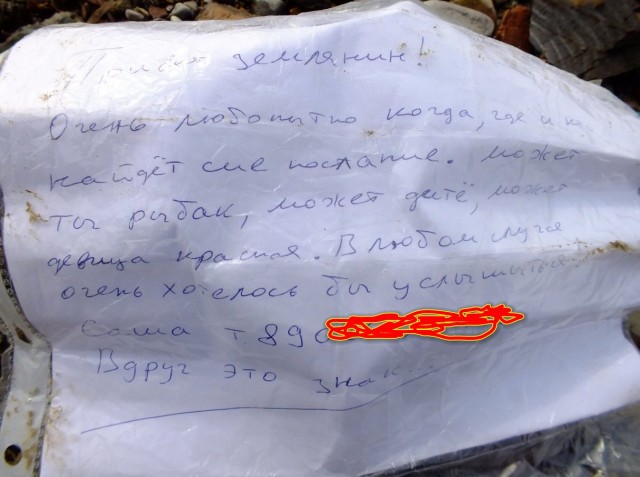 Привет землянин!
Очень любопытно когда, где и к
найдёт сие послание. Может
ты рыбак, может дитё, может
девица красная. В любом случае
очень хотелось бы услышаться
Саша т. 890
Вдруг это знак...